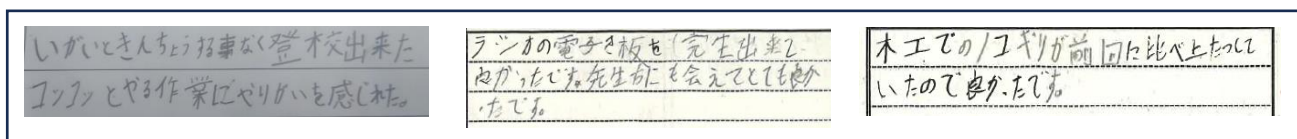 いがいときんちょうする事なく登校出来た
コツコツとやる作業にやりがいを感じれた。
ラジオの電子き板を完生出来て
良かったです。先生方にも会えてとても良か
ったです。
木工でのノコギリが前回に比べ上たつして
いたので良かったです。